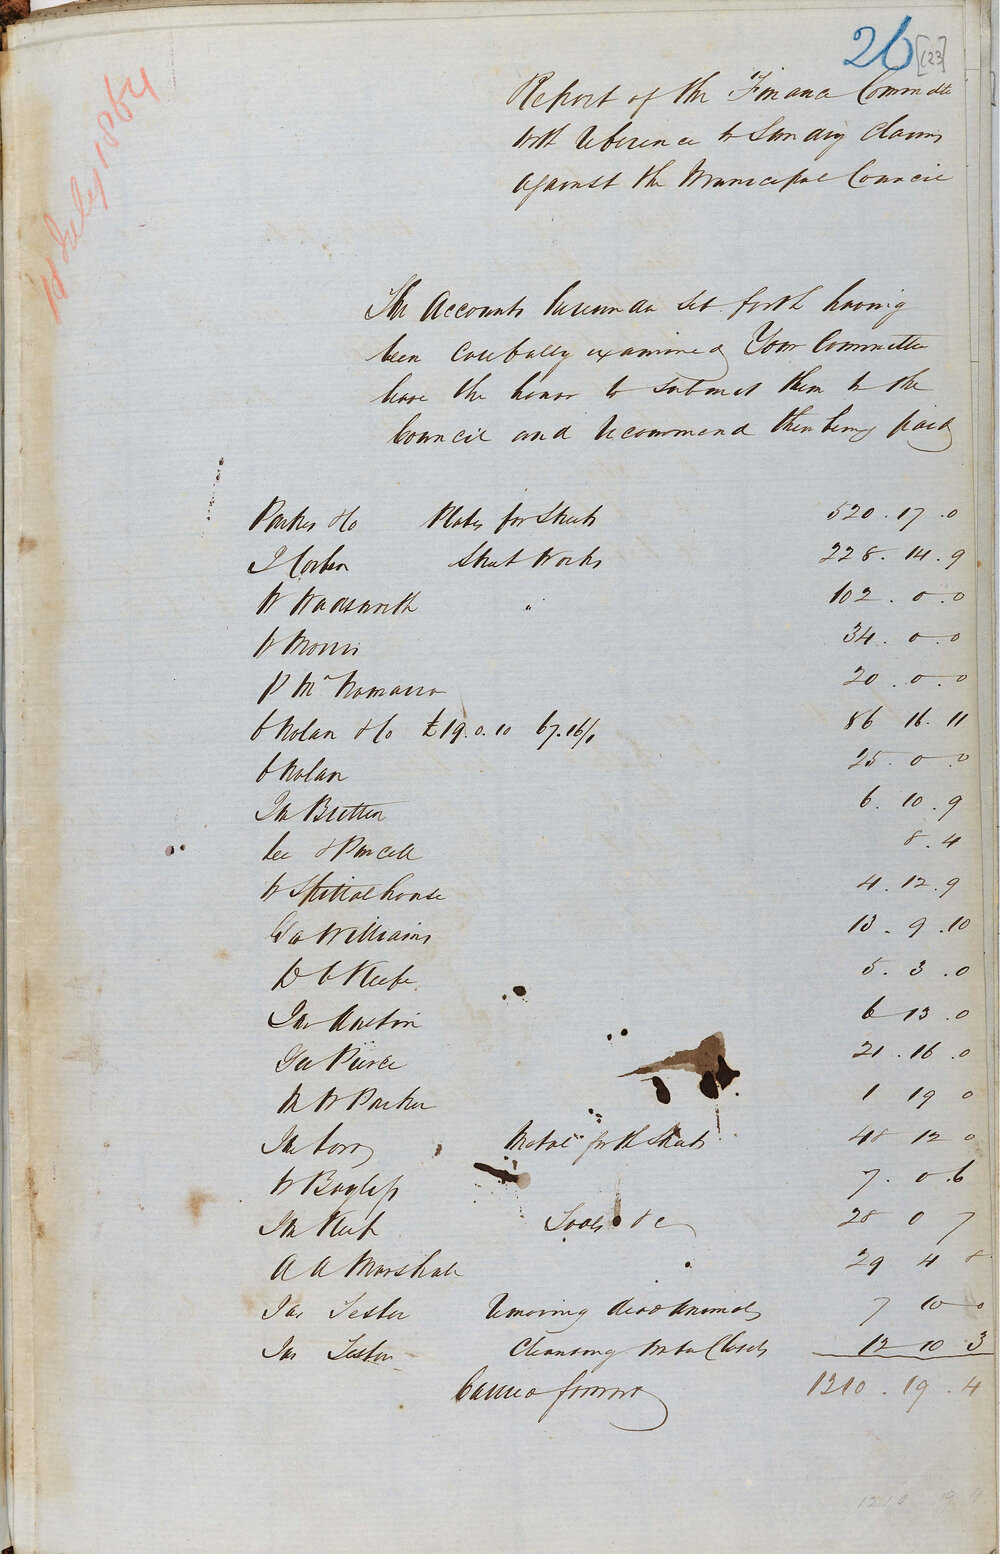 26 [23]
11 July 1864
Report of the Finance Committee
with reference to Sundry Claims
against the Municipal Council
The Accounts hereunder set forth having
been carefully examined Your Committee
have the honor to submit them to the
Council and recommend their being paid
Parkes & Co Plates for Streets 520 . 17 . 0
J Corben Street Works 228 . 14 . 9
W Wadsworth " 102 . 0 . 0
W Morris 34 . 0 . 0
P McNamara 20 . 0 . 0
C Nolan & Co £19. 0. 10 67. 16/1 86 16 . 11
C Nolan 25 . 0 . 0
Jn Britten 6 . 10 . 9
Lee & Purcell 8 . 4
W Spittalhouse 4 . 12 . 9
Geo Williams 13 . 9 . 10
D O Keefe 5 . 3 . 0
Jas Austin 6 13 . 0
Geo Pierce 21 . 16 . 0
W Parker 1 19 0
Jn Metal for the Streets 48 12 0
W Bayless 7 . 0 . 6
Jn Keep Tools &c 28 0 7
A A Marshall 29 4 8
Jas Lester Removing dead Animals 7 10 0
Jas Lester Cleansing Water Closets 12 10 3
Carried forward 1210 . 19 . 4
1210 19 4